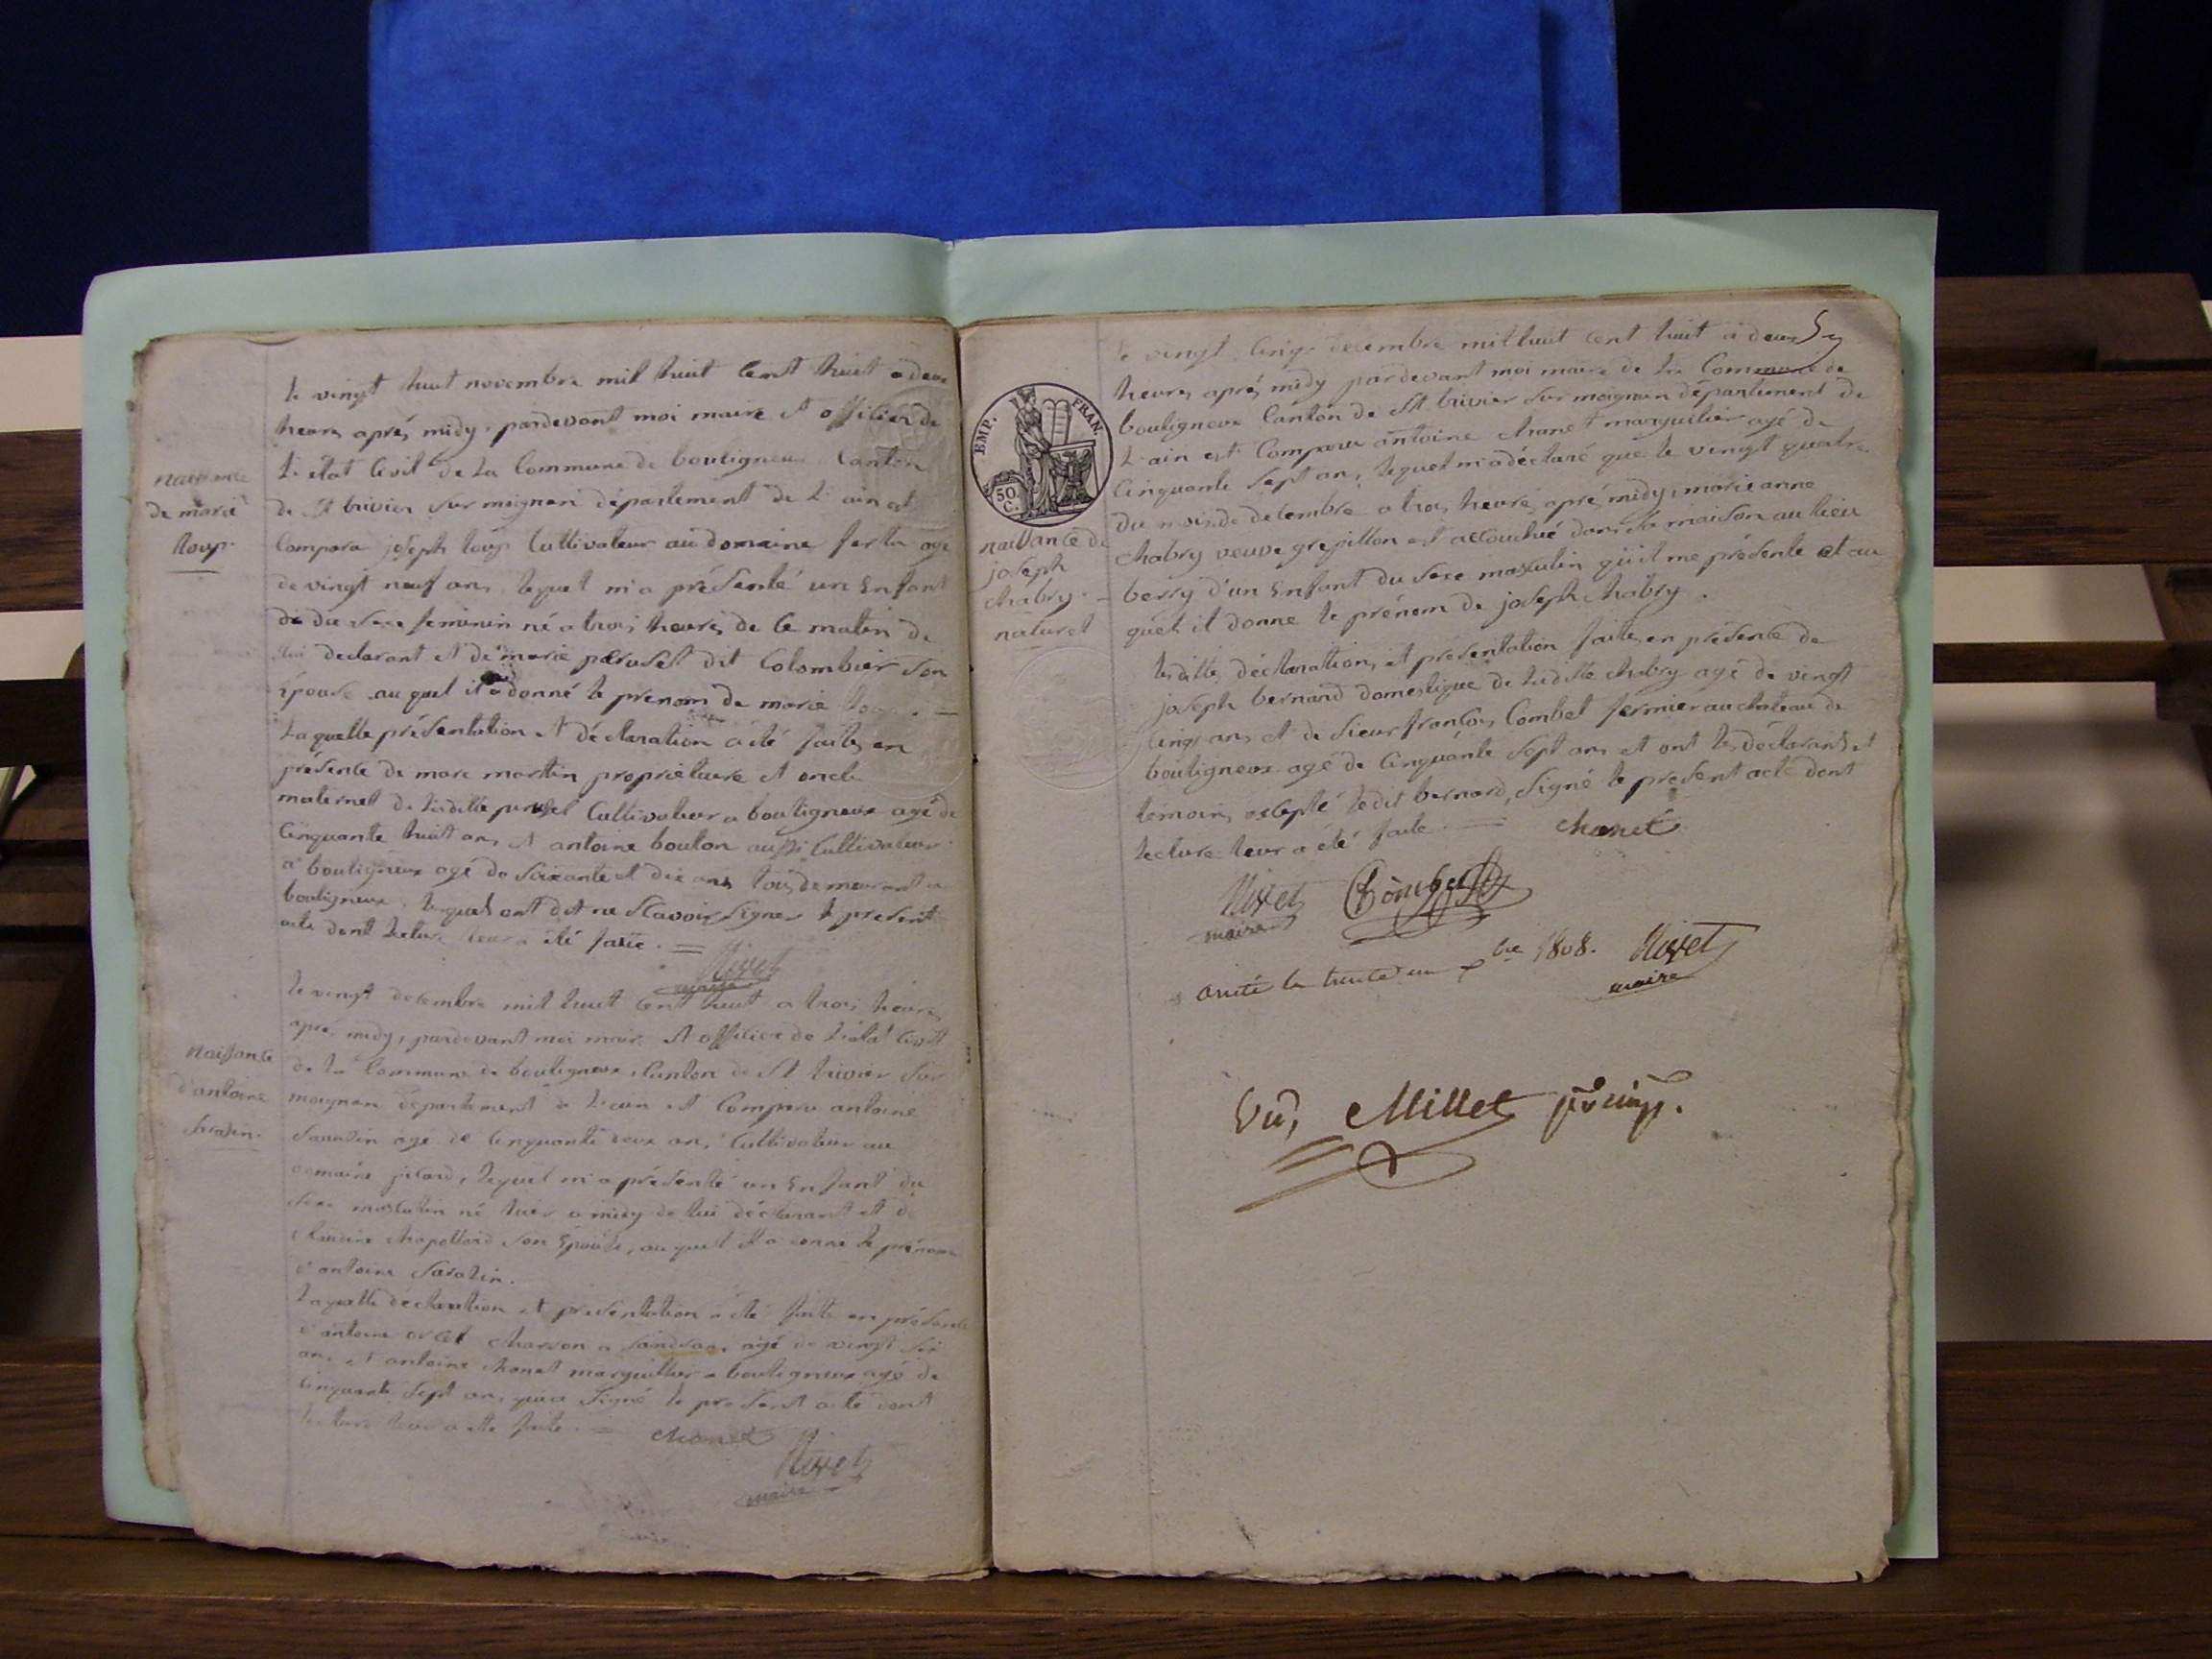 naissance
de marie
loup.
le vingt huit novembre mil huit cent huit a deux
heures aprés midy, pardevant moi maire et officier de
l'etat civil de la commune de bouligneux canton
de St trivier sur moignan département de l'ain est
comparu joseph loup cultivateur au domaine agé
de vingt neuf ans, lequel m'a présenté un Enfant
du sexe feminin né a trois heures de ce matin de
lui declarant et de marie dit colombier son
épouse auquel il a donné le prenom de marie loup. =
laquelle présentation et déclaration a été faites en
présence de marc martin proprietaire et oncle
maternel de laditte cultivateur a bouligneux agé de
cinquante huit ans et antoine bouton aussi cultivateur
a bouligneux agé de soixante et dix ans tous demeurant a
bouligneux, lesquels ont dit ne scavoir signer le present
acte dont lecture leur a été faite. =
Nivet
maire
naissance
d'antoine
saratin.
le vingt decembre mil huit cent huit a trois heures
apres midy, pardevant moi maire et officier de l'état civil
de la commune de bouligneux, canton de St trivier sur
moignan département de l'ain est comparu antoine
saratin agé de cinquante deux ans, cultivateur au
domaine picard, lequel m'a présenté un Enfant du
sexe masculin né hier a midy de lui déclarant et de
claudine chapolard son épouse, auquel il a donné le prénom
d'antoine saratin.
laquelle declaration et présentation a été faite en présence
d'antoine charon a sandrans agé de vingt six
ans et antoine chanet marguillier a bouligneux agé de
cinquante sept ans, qui a signé le present acte dont
lecture leur a été faite. = chanet
Nivet
maire
EMP. FRAN.
50.
C.
naissance de
joseph
chabry.
naturel
le vingt cinq decembre mil huit cent huit a deux
heures aprés midy pardevant moi maire de la commune de
bouligneux canton de St trivier sur moignan département de
l'ain est comparu antoine chanet marguillier agé de
cinquante sept ans, lequel m'a déclaré que le vingt quatre
du mois de decembre a trois heures aprés midy, marie anne
chabry veuve grepillon est accouchée dans sa maison au lieu
berry d'un Enfant du sexe masculin qu'il me présente et au
quel il donne le prénom de joseph chabry.
lesdittes déclarations et présentation faites en présence de
joseph bernard domestique de laditte chabry agé de vingt
cinq ans et de sieur françois combet fermier au chateau de
bouligneux agé de cinquante sept ans et ont les déclarant et
témoins, excepté ledit bernard, signé le present acte dont
lecture leur a été faite. = chanet
Nivet
maire
arrété le trente un xbre 1808. Nivet
maire
Vu, Millet